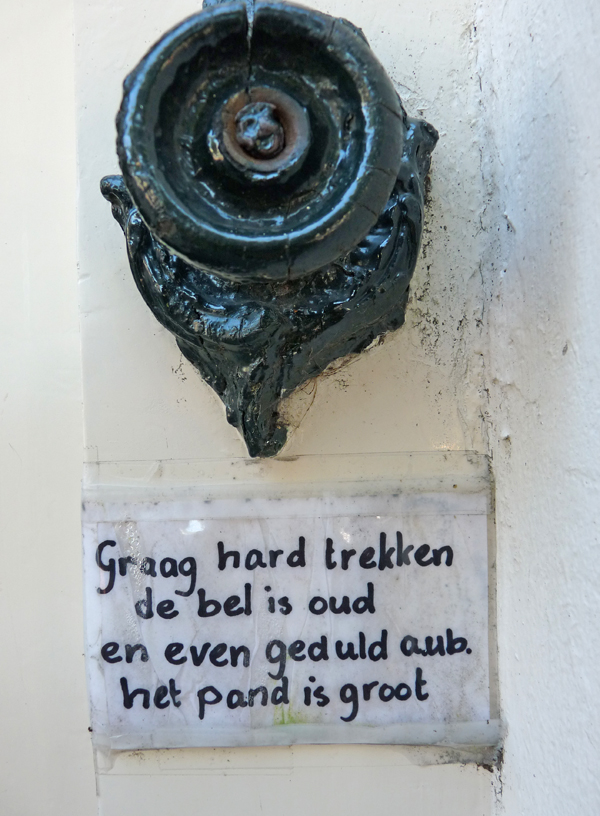 Graag hard trekken
de bel is oud
en even geduld aub.
het pand is groot